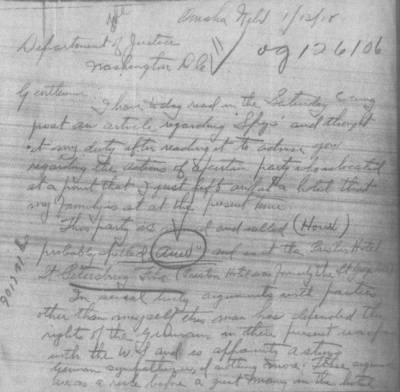 Omaha Neb 1/12/18.
Department of Justice
Washington D.C.
og 126106
Gentlemen
I have today read in the Saturday Evening
post an article regarding 'Spys' and thought
it my duty after reading it to advise you
regarding the actions of a certain party located
at a point that I just left and at a hotel that
my family is at at the present time.
This party is and called (House)
probably spelled and is at the Hotel
St Petersburg Fla Hotel was formerly the
In several arguments with parties
other than myself this man has defended the
rights of the Germans in their present
with the U.S. and is apparently a strong
German sympathizer, if nothing more. These
were as a rule before a great many in the